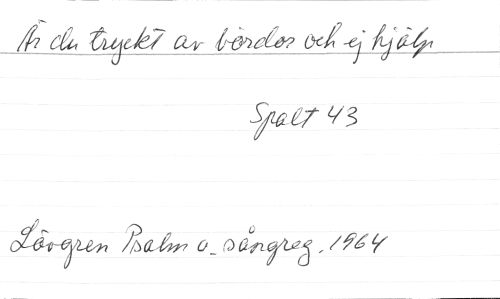 Är du tryckt av bördor och ej hjälp
Spalt 43
Lövgren Psalm o. sångreg. 1964